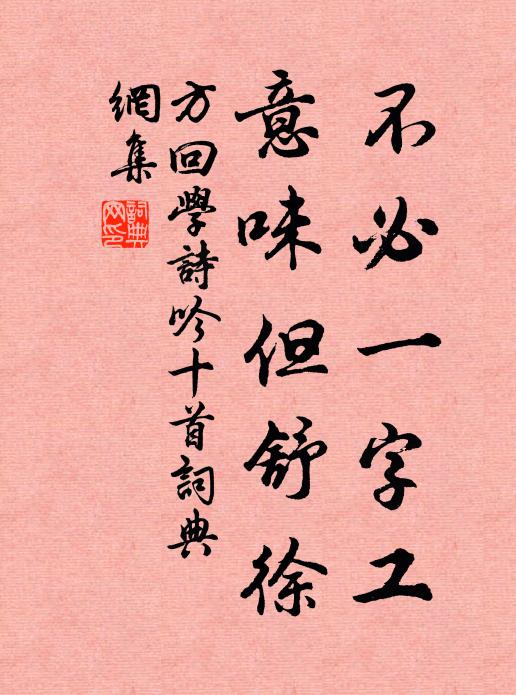 不必一字工
意味但舒徐
方回學詩吟十首詞典
網集
詞典
网印